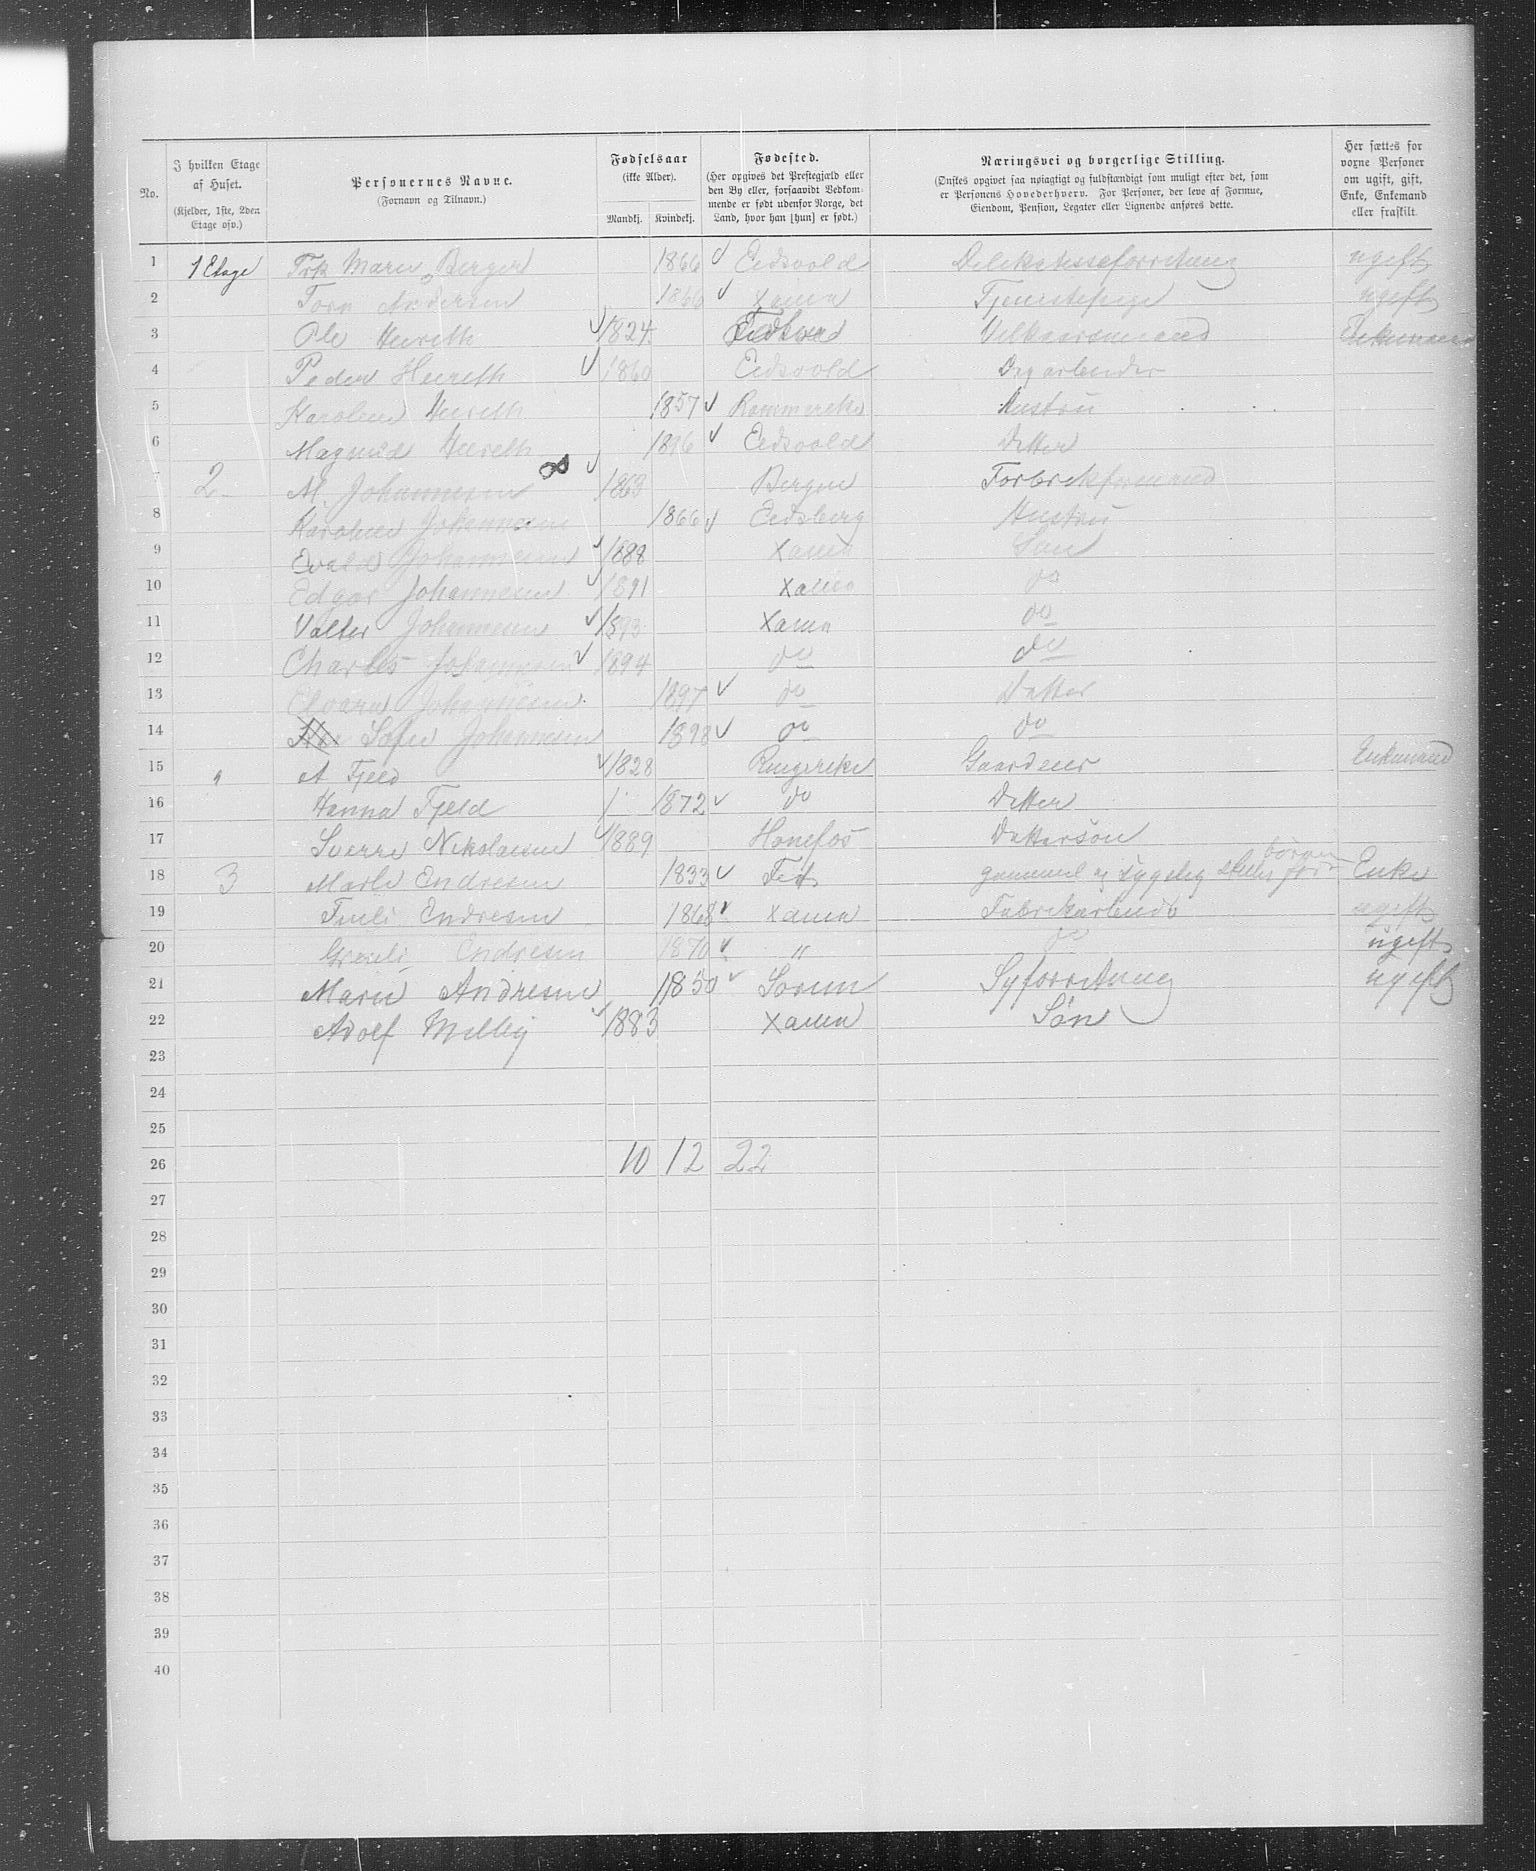 No.
I hvilken Etage af Huset.
(Kjelder, 1ste, 2den Etage osv.)
Personernes Navne.
(Fornavn og Tilnavn.)
Fødselsaar
(ikke Alder).
Mandkj. Kvindekj.
Fødested.
(Her opgives det Prestegjæld eller den By eller, forsaavidt Vedkommende er født udenfor Norge, det Land, hvor han [hun] er født.)
Næringsvei og borgerlige Stilling.
(Ønskes opgivet saa nøiagtigt og fuldstændigt som muligt efter det, som er Personens Hovederhverv. For Personer, der leve af Formue, Eiendom, Pension, Legater eller Lignende anføres dette.
Her sættes for voxne Personer om ugift, gift, Enke, Enkemand eller fraskilt.
1 1 Etage Frk Maren Berger 1866 Eidsvold Delikatesseforretning ugift
2 Andersen 1866 Xania Tjenestepige ugift
3 Ole 1824 Vilkaarsmand Enkemand
4 Peder 1860 Eidsvold
5 1857 Rommerike Hustru
6 Magnild 1896 Eidsvold Datter
7 2 M. Johannesen 1863 Bergen
8 Karoline Johannesen 1866 Eidsberg Hustru
9 Evald Johannesen 1888 Xania Søn
10 Edgar Johannesen 1891 Xania do
11 Valter Johannesen 1893 Xania do
12 Charles Johannesen 1894 do do
13 Johannesen 1897 do Datter
14 Sofie Johannesen 1898 do do
15 " A Fjeld 1828 Ringerike Gaardeier Enkemand
16 Hanna Fjeld 1872 do Datter
17 Sverre Nikolaisen 1889 Hønefos Dattersøn
18 3 Endresen 1833 Fet gammel og sygelig børnene Enke
19 Endresen 1868 Xania ugift
20 Endresen 1870 " do ugift
21 Marie Andresen 1850 Sørum Syforretning ugift
22 Adolf Melby 1883 Xania Søn
23
24
25
26 10 12 22
27
28
29
30
31
32
33
34
35
36
37
38
39
40